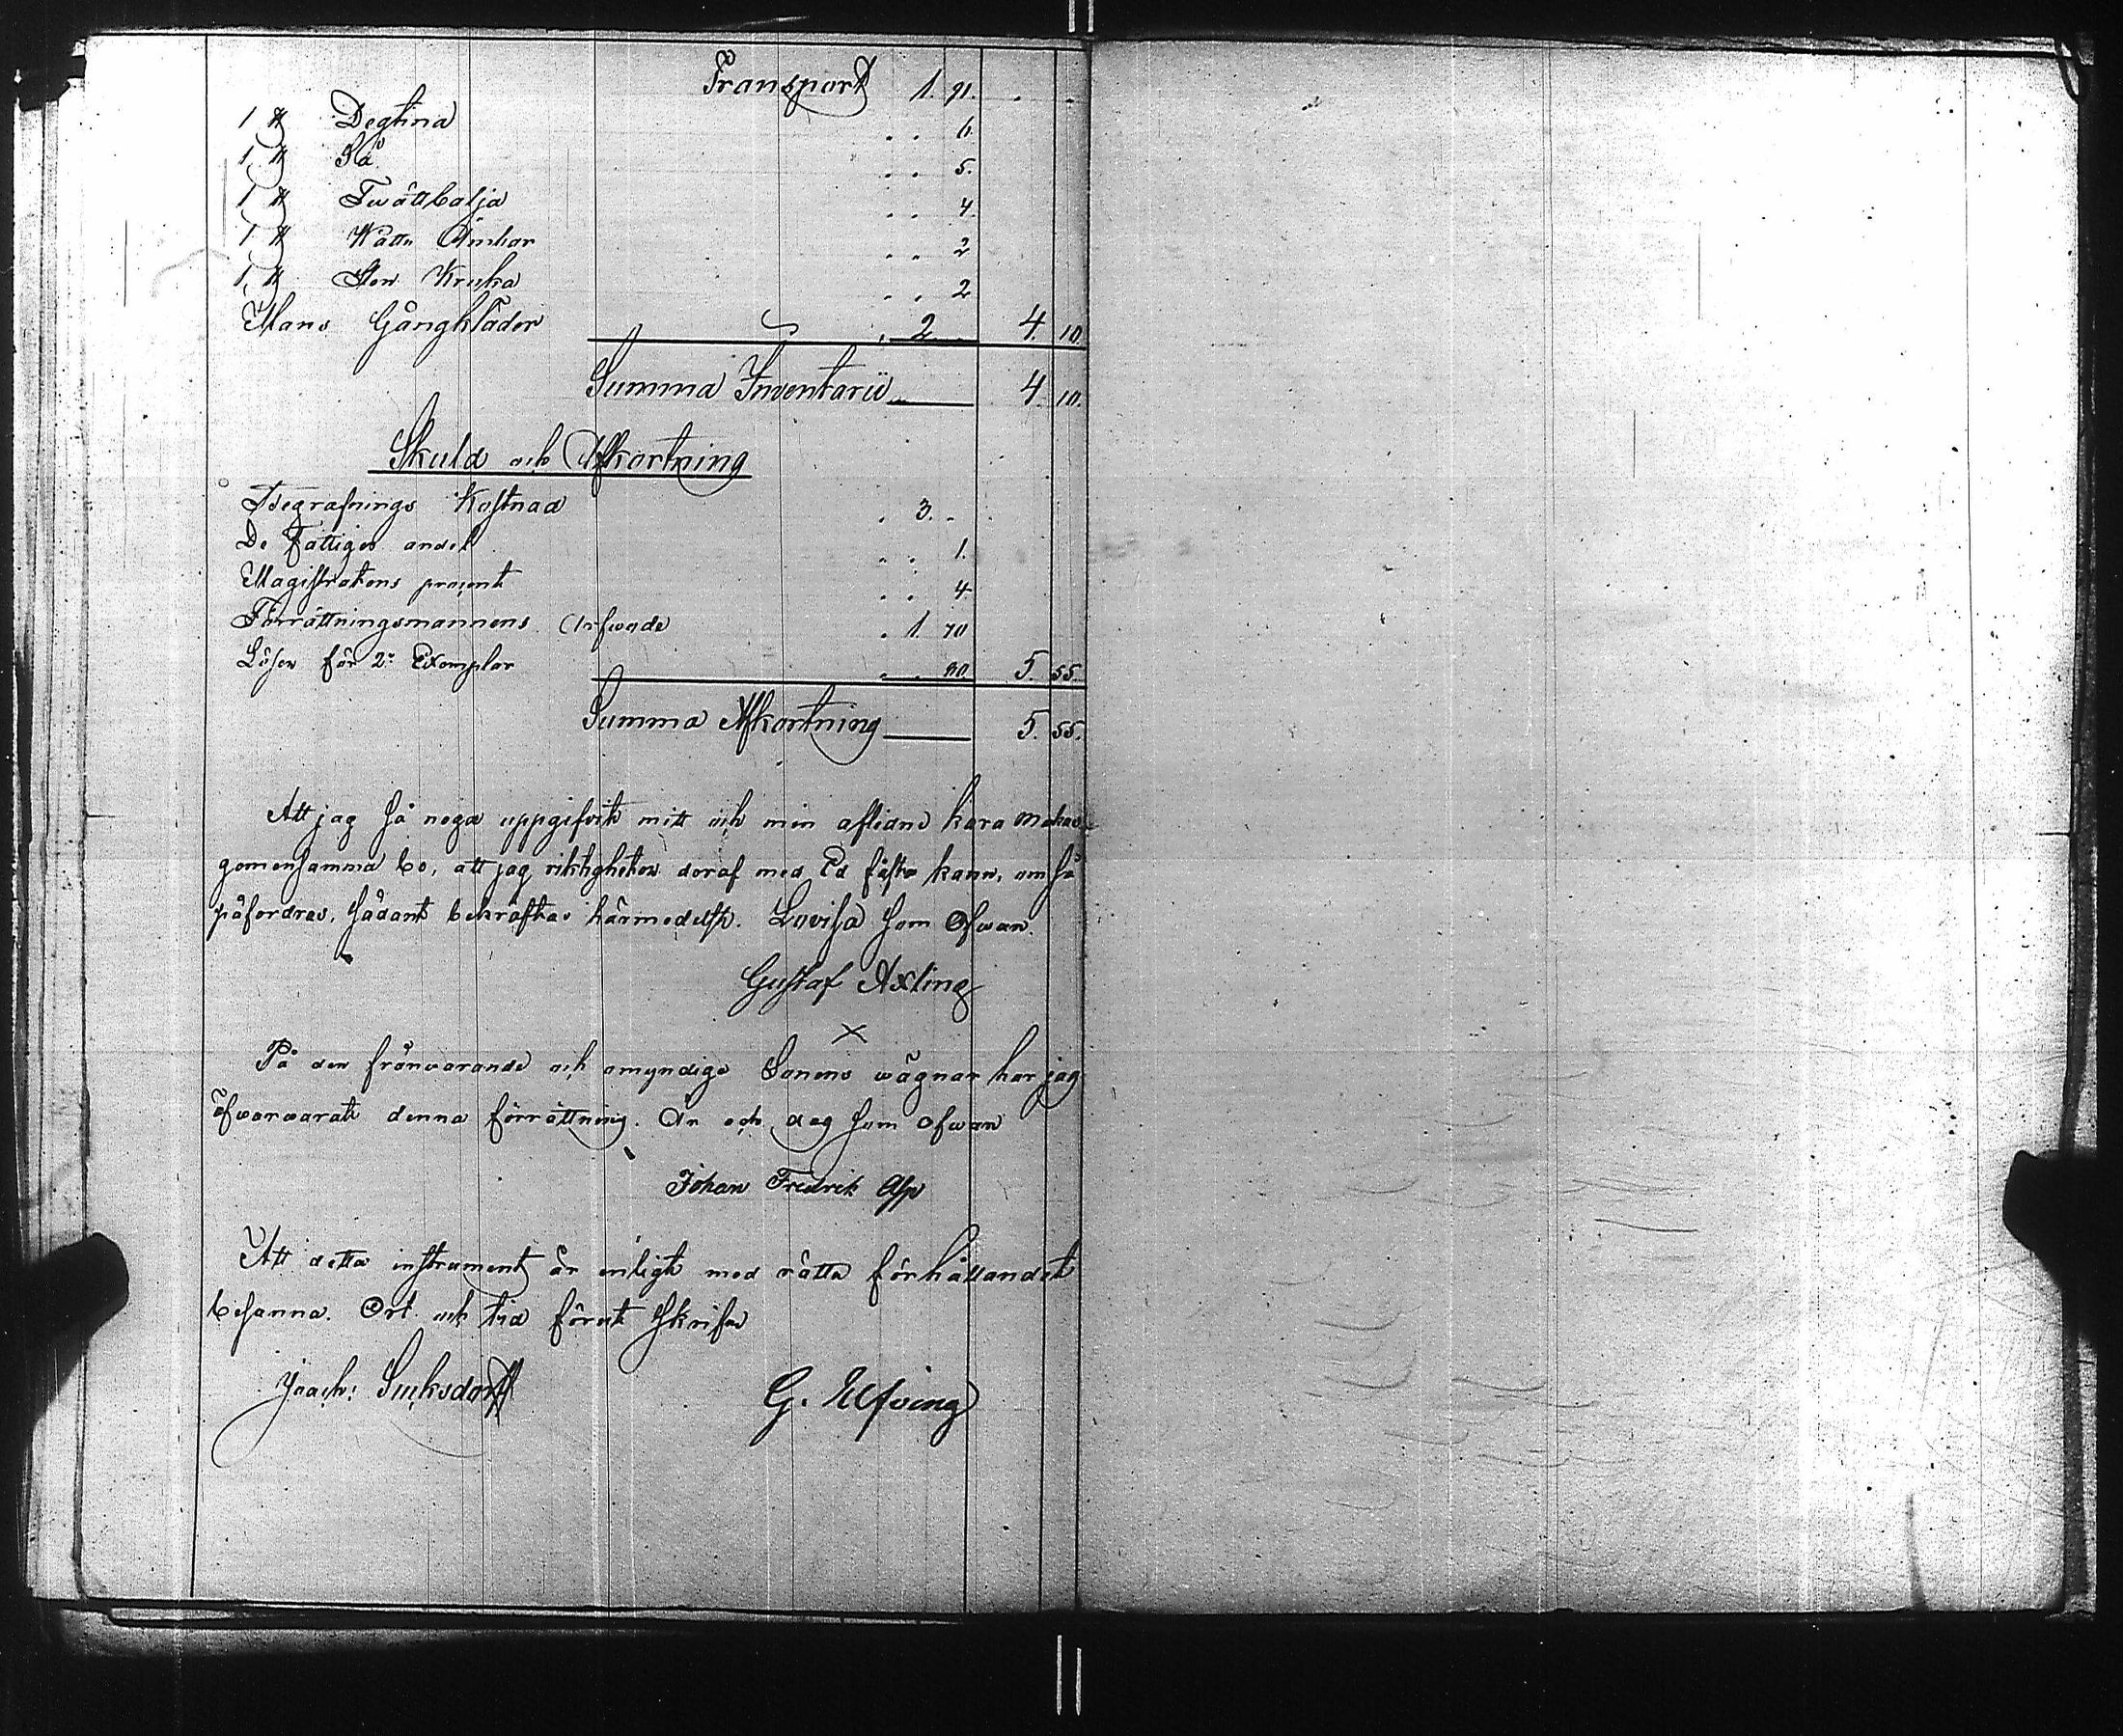 Transport 1. 91. . .
1 st Degtina . . 6.
1 st Så . . 5.
1 st Twättbalja . . 4.
1 st Wattu Ämbar . . 2
1 st Sten Kruka . . 2
Mans Gångkläder . 2 . 4. 10.
Summa Inventarii 4. 10.
Skuld och Afkortning
Begrafnings Kostnad . 3. .
De Fattiges andel . . 1.
Magistratens procent . . 4.
Förrättningsmannens Arfwode . 1. 70
Lösen för 2ne Exemplar . . 80. 5. 55.
Summa Afkortning 5. 55.
Att jag så noga uppgifvit mitt och min aflidne kära Makas
gemensamma bo, att jag riktigheten deraf med Ed fästa kann, om så
påfordras, sådant bekräftas härmedelst. Lovisa som Ofwan.
Gustaf Axling
På den frånvarande och omyndige Sonens wägnar har jag
öfwerwarit denna förrättning. År och dag som ofwan
Johan Fredrik Asp
Att detta instrument är enligt med rätta förhållandet
besanna. Ort och tid först skrifne
Joach: Sucksdorff G. Elfving